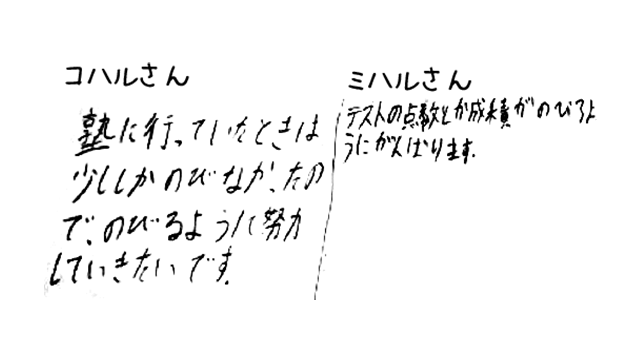 コハルさん
塾に行っていたときは
少ししかのびなかったの
で、のびるように努力
していきたいです。
ミハルさん
テストの点数とか成績がのびるよ
うにがんばります。